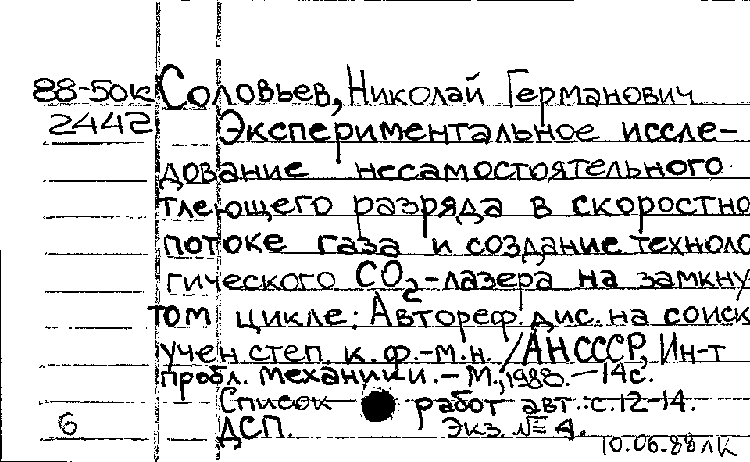 88-50к Соловьев, Николай Германович
2442 Экспериментальное иссле-
дование несамостоятельного
тлеющего разряда в скоростно
потоке газа и создание техноло
гического CO2-лазера на замкну
том цикле: Автореф. дис. на соиск
учен. степ. к. ф.-м.н. /АН СССР, Ин-т
пробл. механики. - М., 1988. - 14с.
Список работ авт.: с.12-14.
6 ДСП. Экз. № 4.
10.06.88 лк